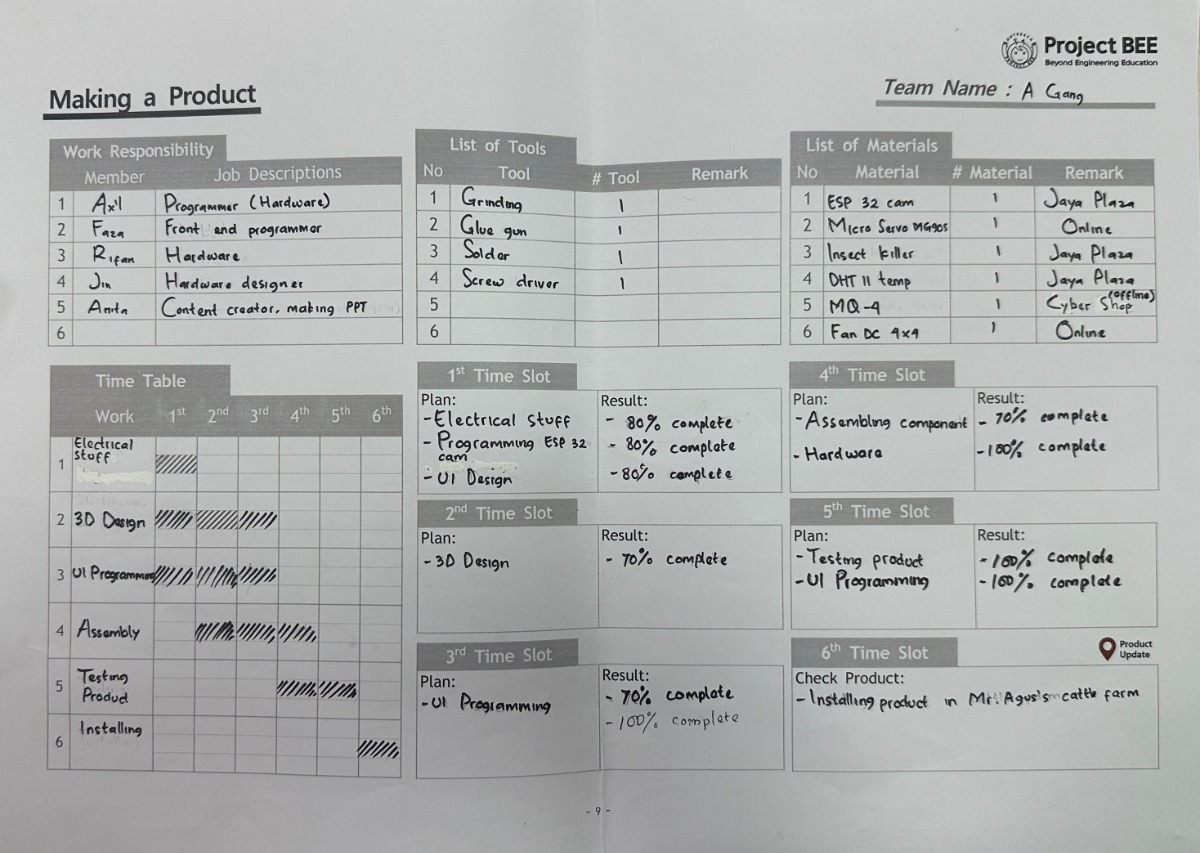 Project BEE
Beyond Engineering Education
Making a Product
Team Name : A Gang
Work Responsibility
Member Job Descriptions
1 Axl Programmer (Hardware)
2 Faza Front end programmer
3 Rifan Hardware
4 Jin Hardware designer
5 Anita Content creator, making PPT
6
List of Tools
No Tool # Tool Remark
1 Grinding 1
2 Glue gun 1
3 Solder 1
4 Screw driver 1
5
6
List of Materials
No Material # Material Remark
1 ESP 32 cam 1 Jaya Plaza
2 Micro Servo MG90S 1 Online
3 Insect killer 1 Jaya Plaza
4 DHT 11 temp 1 Jaya Plaza
5 MQ-4 1 Cyber Shop (offline)
6 Fan DC 4x4 1 Online
Time Table
Work 1st 2nd 3rd 4th 5th 6th
1 Electrical
stuff
2 3D Design
3 UI Programming
4 Assembly
5 Testing
Product
6 Installing
1st Time Slot
Plan:
- Electrical Stuff
- Programming ESP 32
cam
- UI Design
Result:
- 80% complete
- 80% complete
- 80% complete
2nd Time Slot
Plan:
- 3D Design
Result:
- 70% complete
3rd Time Slot
Plan:
- UI Programming
Result:
- 70% complete
- 100% complete
4th Time Slot
Plan:
- Assembling component
- Hardware
Result:
- 70% complete
- 100% complete
5th Time Slot
Plan:
- Testing product
- UI Programming
Result:
- 100% complete
- 100% complete
6th Time Slot
Product
Update
Check Product:
- Installing product in Mr. Agus's cattle farm
- 9 -